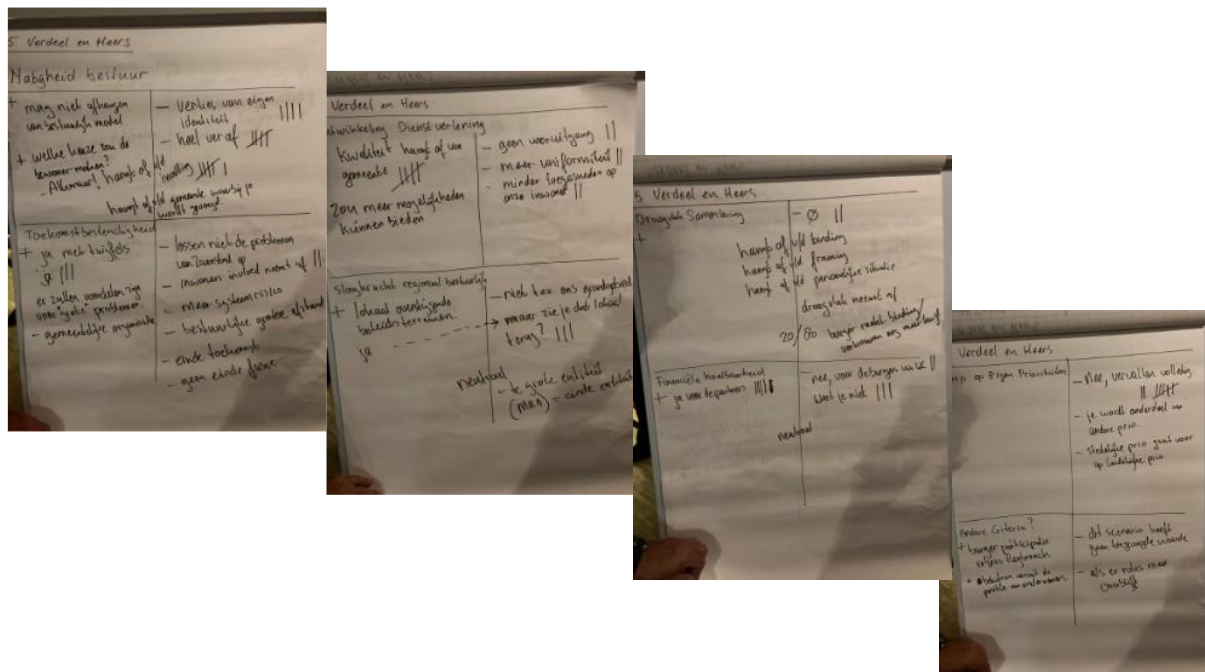 5. Verdeel en Heers
Nabijheid bestuur
+ mag niet afhangen
van bestuurlijk model
+ welke keuze zou de
bewoner maken?
- Alkmaar!
hangt af v/d
invulling
hangt af v/d gemeente waarbij je
wordt gevoegd.
- verlies van eigen
identiteit ||||
- heel ver af
Toekomstbestendigheid
+ ja met twijfels
ø |||
er zullen voordelen zijn
voor "grote" problemen.
- gemeentelijke organisatie
- lossen niet de problemen
van Zaanstad op
- inwoners invloed neemt af ||
- meer systeem risico
- bestuurlijke grotere afstand
- einde toekomst
- geen einde fusie
Verdeel en Heers
Ontwikkeling Dienstverlening
kwaliteit hangt af van
gemeente
Zou meer mogelijkheden
kunnen bieden
- geen vooruitgang ||
- meer uniformiteit ||
- minder toegesneden op
onze inwoner ||
Slagkracht regionaal bestuurlijk
+ lokaal overstijgende
beleidsterreinen.
ja
- niet t.a.v. ons grondgebied
→ maar zie je dat lokaal
terug? ||||
neutraal
- te grote entiteit
(MRA) = einde entiteit
5 Verdeel en Heers
Draagvlak Samenleving
+
- ø ||
hangt af v/d binding
hangt af v/d framing
hangt af v/d persoonlijke situatie
draagvlak neemt af
20/80 burger raakt binding/
vertrouwen nog meer kwijt
Financiële houdbaarheid
+ ja voor de partners
- nee, voor de burger
weet je niet |||
neutraal
Verdeel en Heers
op Eigen Prioriteiten
- Nee, vervallen volledig.
- je wordt onderdeel van
andere prio.
- stedelijke prio gaat voor
op landelijke prio
Andere Criteria?
+ burger participatie
- dit scenario heeft
geen toegevoegde waarde
- Als er niks meer
overblijft